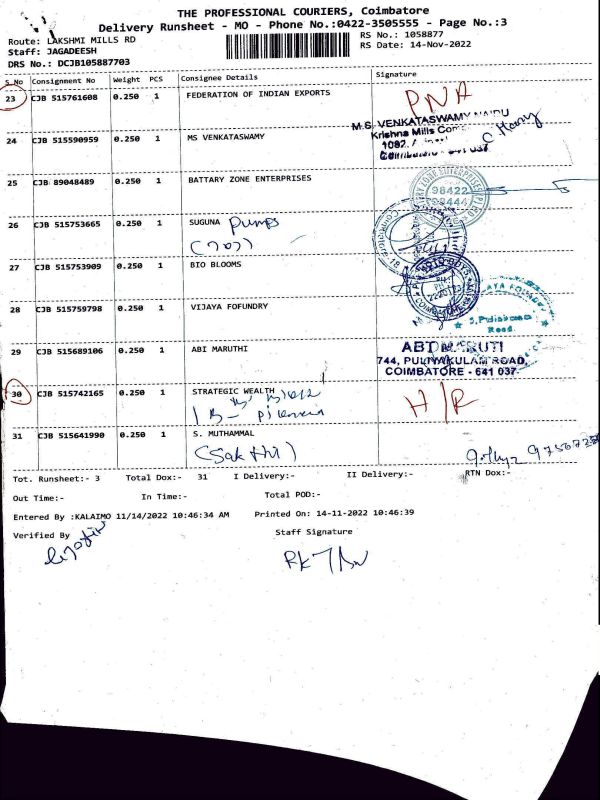 THE PROFESSIONAL COURIERS, Coimbatore
Delivery Runsheet - MO - Phone No.:0422-3505555 - Page No.:3
Route: LAKSHMI MILLS RD
RS No.: 1058877
Staff: JAGADEESH
RS Date: 14-Nov-2022
DRS No.: DCJB105887703
S No Consignment No Weight PCS Consignee Details Signature
23 CJB 515761608 0.250 1 FEDERATION OF INDIAN EXPORTS PNA
M.S. VENKATASWAMY NAIDU
Krishna Mills
1082,
24 CJB 515590959 0.250 1 MS VENKATASWAMY
25 CJB 89048489 0.250 1 BATTARY ZONE ENTERPRISES
98422
26 CJB 515753665 0.250 1 SUGUNA Pumps
27 CJB 515753909 0.250 1 BIO BLOOMS
28 CJB 515759798 0.250 1 VIJAYA FOFUNDRY
Road.
29 CJB 515689106 0.250 1 ABI MARUTHI
744, PULIYAKULAM ROAD,
COIMBATORE - 641 037
30 CJB 515742165 0.250 1 STRATEGIC WEALTH H/R
31 CJB 515641990 0.250 1 S. MUTHAMMAL
(Sakthi)
Tot. Runsheet:- 3 Total Dox:- 31 I Delivery:- II Delivery:- RTN Dox:-
Out Time:- In Time:- Total POD:-
Entered By :KALAIMO 11/14/2022 10:46:34 AM Printed On: 14-11-2022 10:46:39
Verified By Staff Signature